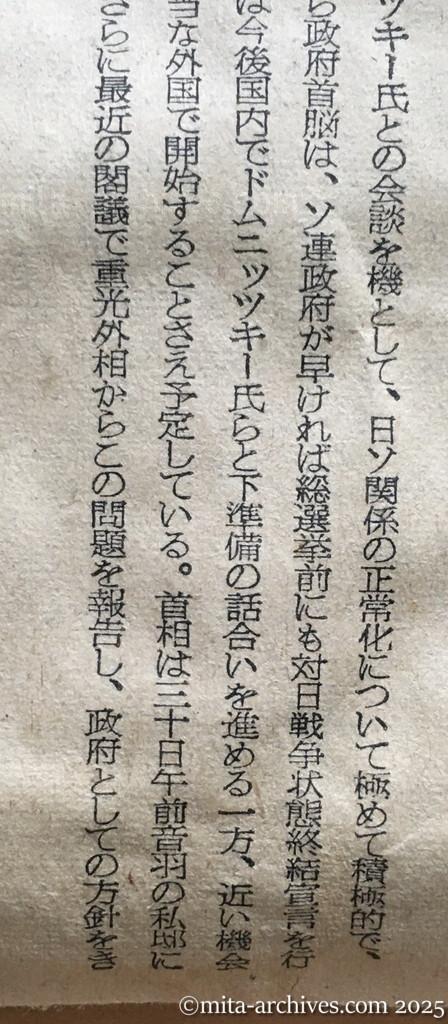 ツキー氏との会談を機として、日ソ関係の正常化について極めて積極的で、
ら政府首脳は、ソ連政府が早ければ総選挙前にも対日戦争状態終結宣言を行
は今後国内でドムニッツキー氏らと下準備の話合いを進める一方、近い機会
当な外国で開始することさえ予定している。首相は三十日午前音羽の私邸に
さらに最近の閣議で重光外相からこの問題を報告し、政府としての方針をき
©mita-archives.com 2025